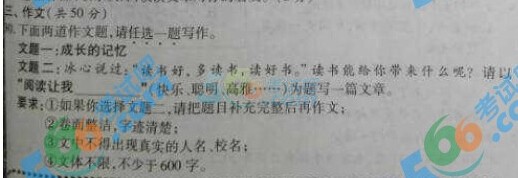 三、作文(共50分)
下面两道作文题,请任选一题写作。
文题一:成长的记忆
文题二:冰心说过:“读书好,多读书,读好书。”读书能给你带来什么呢?请以
“阅读让我________”(快乐、聪明、高雅……)为题写一篇文章。
要求:①如果你选择文题二,请把题目补充完整后再作文;
②卷面整洁,字迹清楚;
③文中不得出现真实的人名、校名;
④文体不限,不少于600字。
566考试网
566考试网